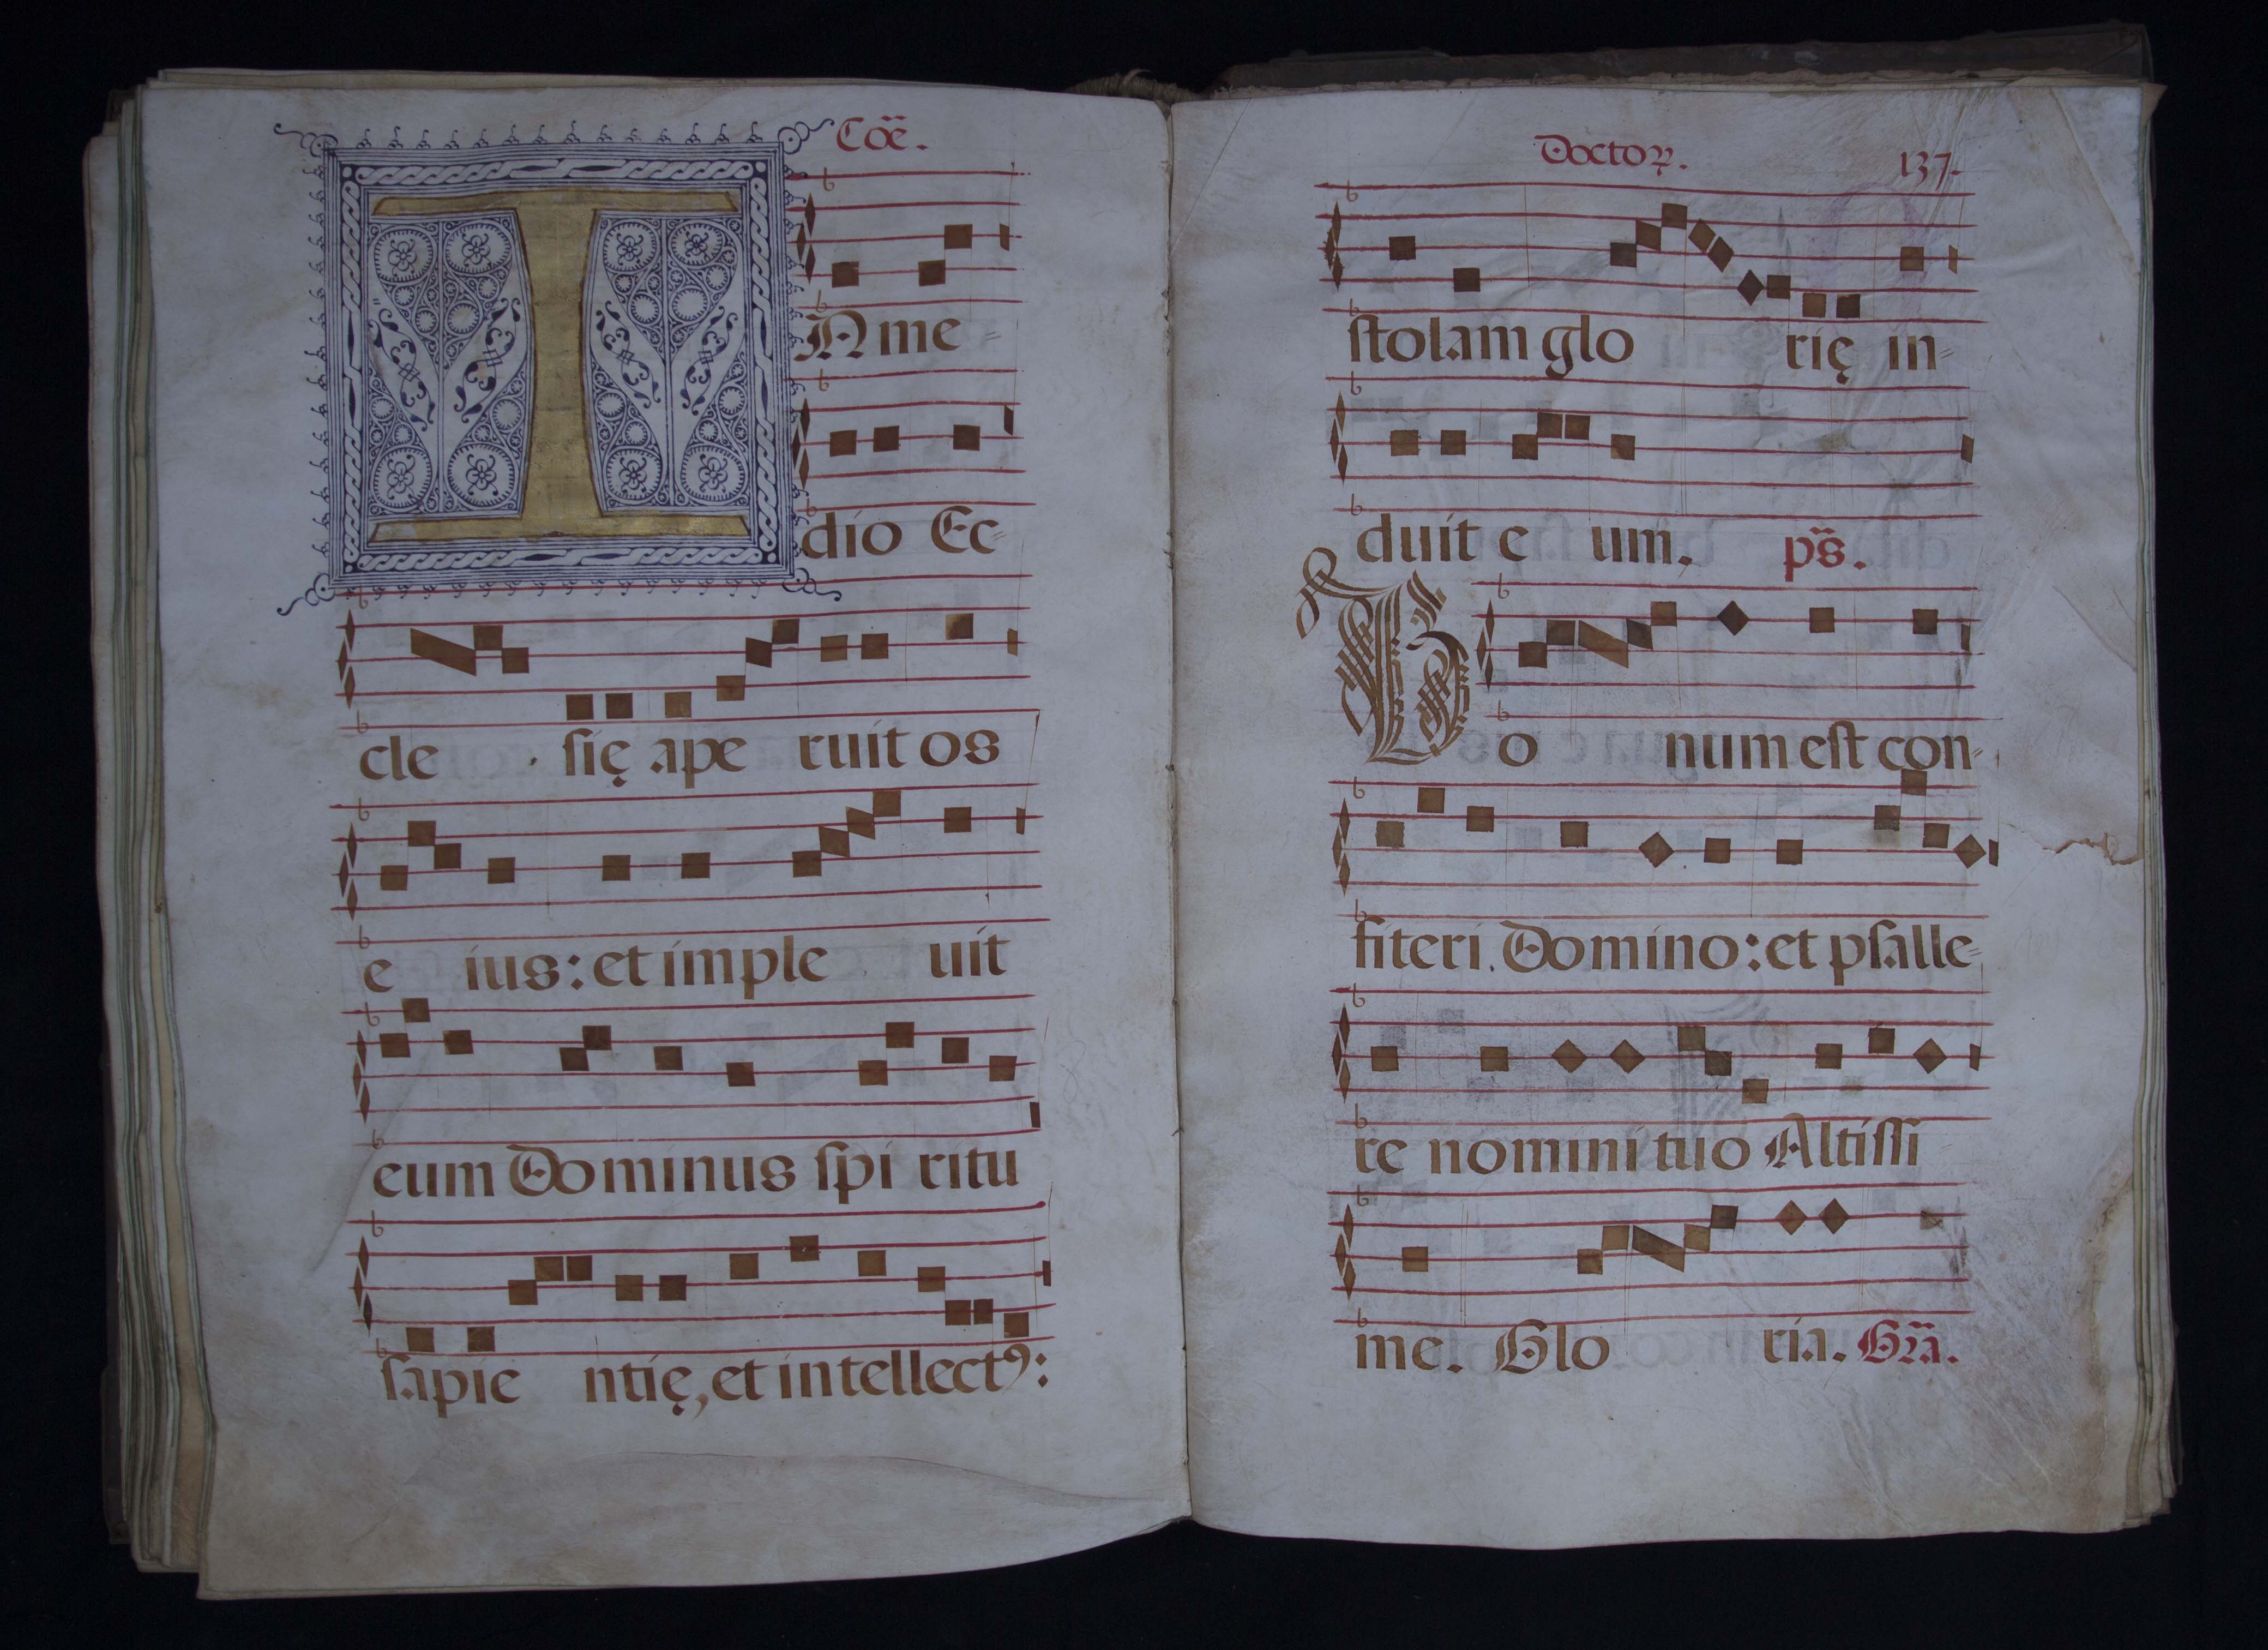 Cõe.
IN me-
dio Ec-
cle się ape ruit os
e ius: et imple uit
eum Dominus ſpi ritu
ſapie ntię, et intellectꝰ:
Doctoꝝ. 137.
ſtolam glo rię in-
duit e um. ps̃.
Bo num eſt con-
fiteri Domino: et pſalle-
re nomini tuo Altiſſi
me. Glo ria. Gr̃a.